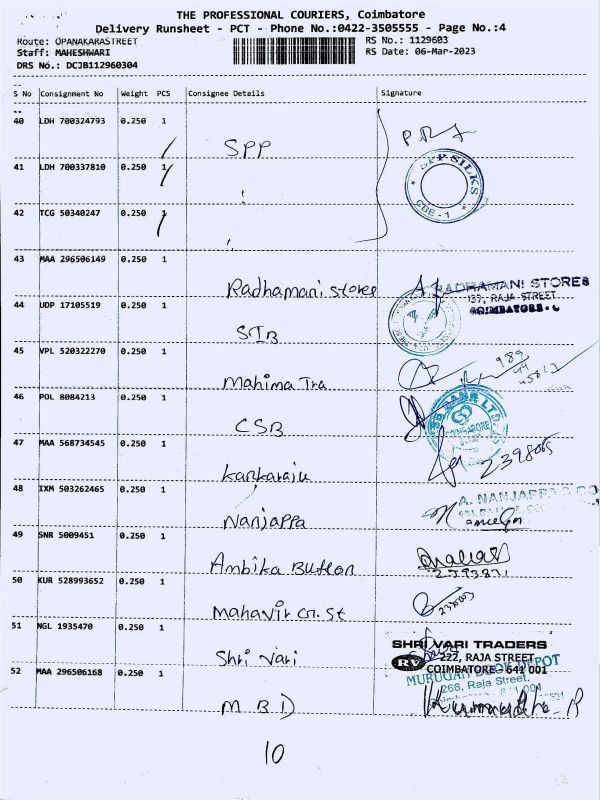 THE PROFESSIONAL COURIERS, Coimbatore
Delivery Runsheet - PCT - Phone No.:0422-3505555 - Page No.:4
Route: OPANAKARASTREET RS No.: 1129603
Staff: MAHESHWARI RS Date: 06-Mar-2023
DRS No.: DCJB112960304
S No Consignment No Weight PCS Consignee Details Signature
40 LDH 700324793 0.250 1
SPP
SPP SILKS
CBE - 1
41 LDH 700337810 0.250 1
42 TCG 50340247 0.250 1
43 MAA 296506149 0.250 1
Radhamani Stores
RADHAMANI STORES
137, RAJA STREET
COIMBATORE
44 UDP 17105519 0.250 1
SIB
45 VPL 520322270 0.250 1
Mahima Tra
989
46 POL 8084213 0.250 1
CSB
CSB BANK LTD
COIMBATORE
47 MAA 568734545 0.250 1
Kankaraju
2398005
48 IXM 503262465 0.250 1
Nanjappa
A. NANJAPPA & CO
49 SNR 5009451 0.250 1
Ambika Button
50 KUR 528993652 0.250 1
Mahavir Cr. St
51 NGL 1935470 0.250 1
Shri Vari
SHRI VARI TRADERS
RV
222, RAJA STREET
COIMBATORE - 641 001
52 MAA 296506168 0.250 1
MBD
266, Raja Street,
10